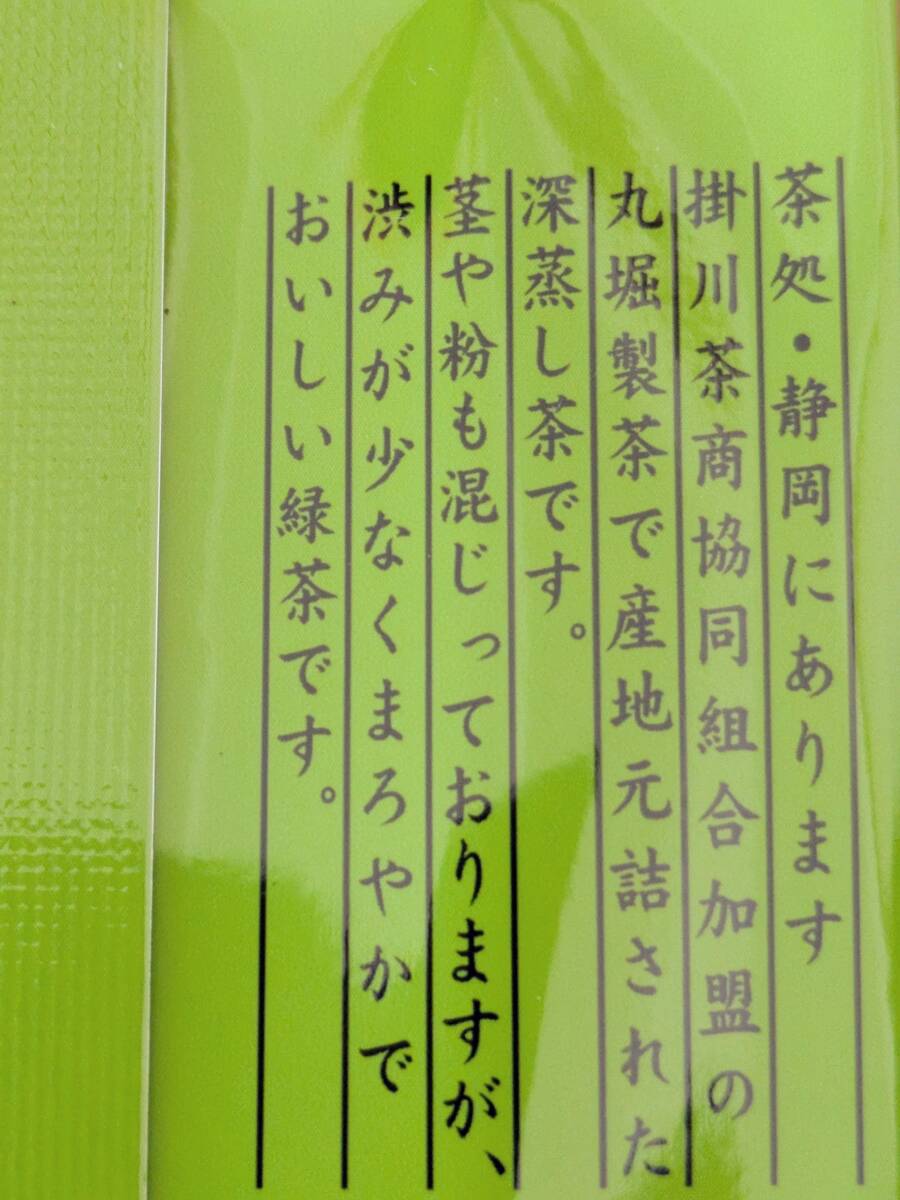 茶処・静岡にあります
掛川茶商協同組合加盟の
丸堀製茶で産地元詰された
深蒸し茶です。
茎や粉も混じっておりますが、
渋みが少なくまろやかで
おいしい緑茶です。